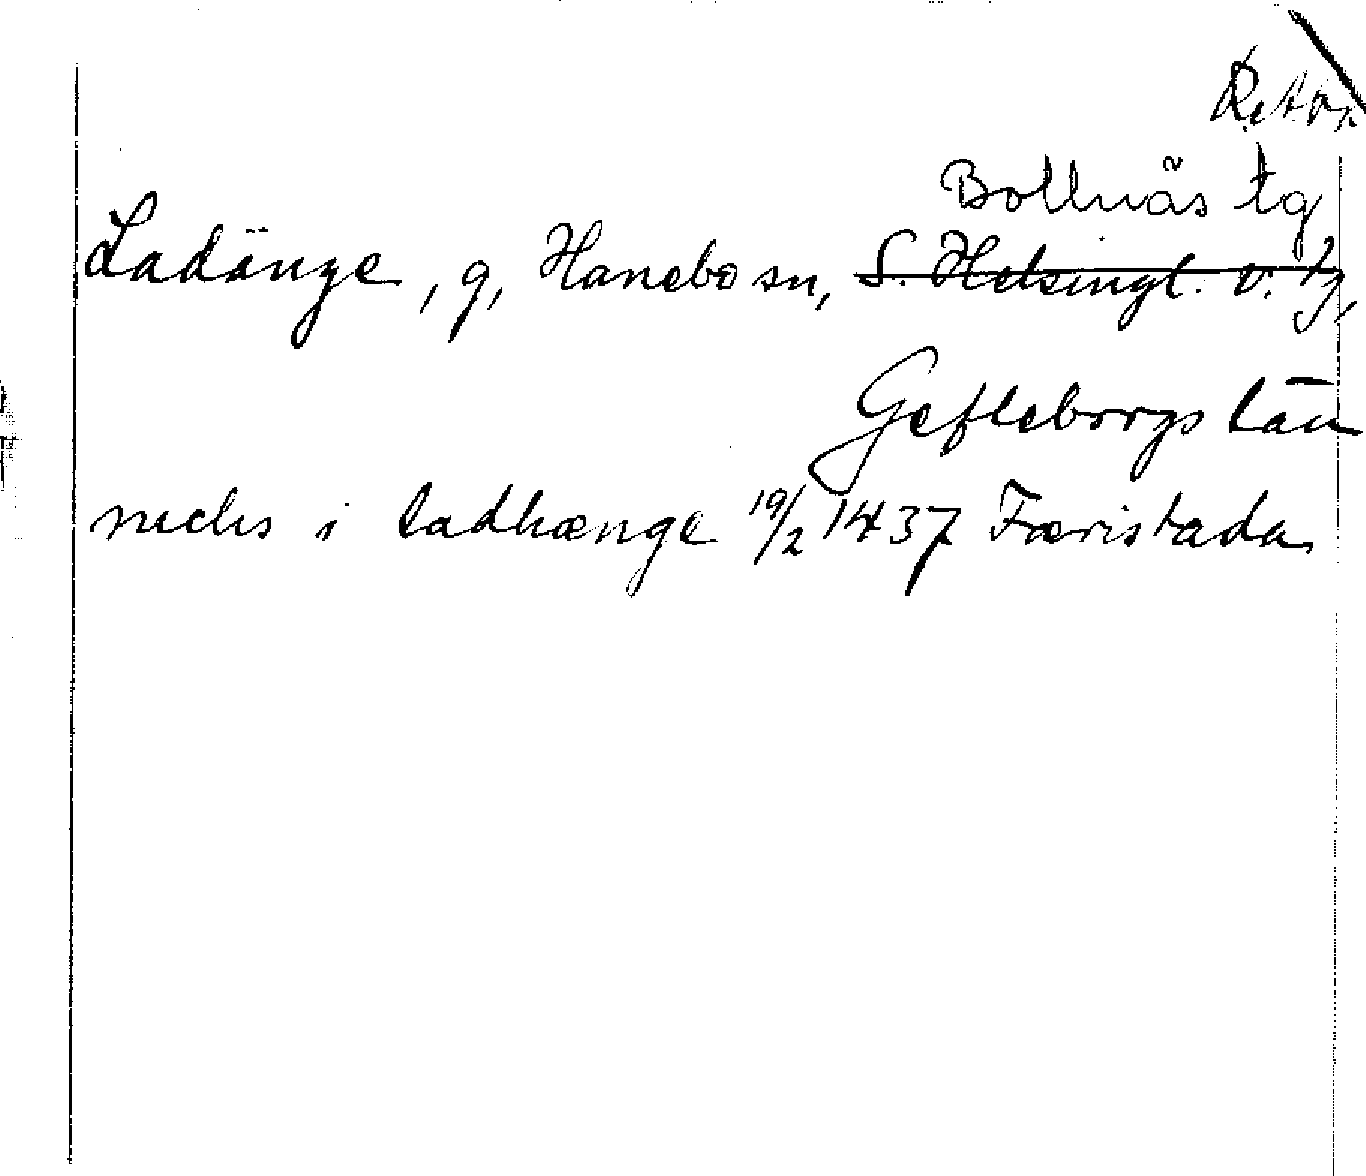 R.Ark.
Bollnäs tg
Ladänge, g, Hanebo sn, S. Helsingl. v. tg,
Gefleborgs län
nielis i ladhænge 19/2 1437 Færistada